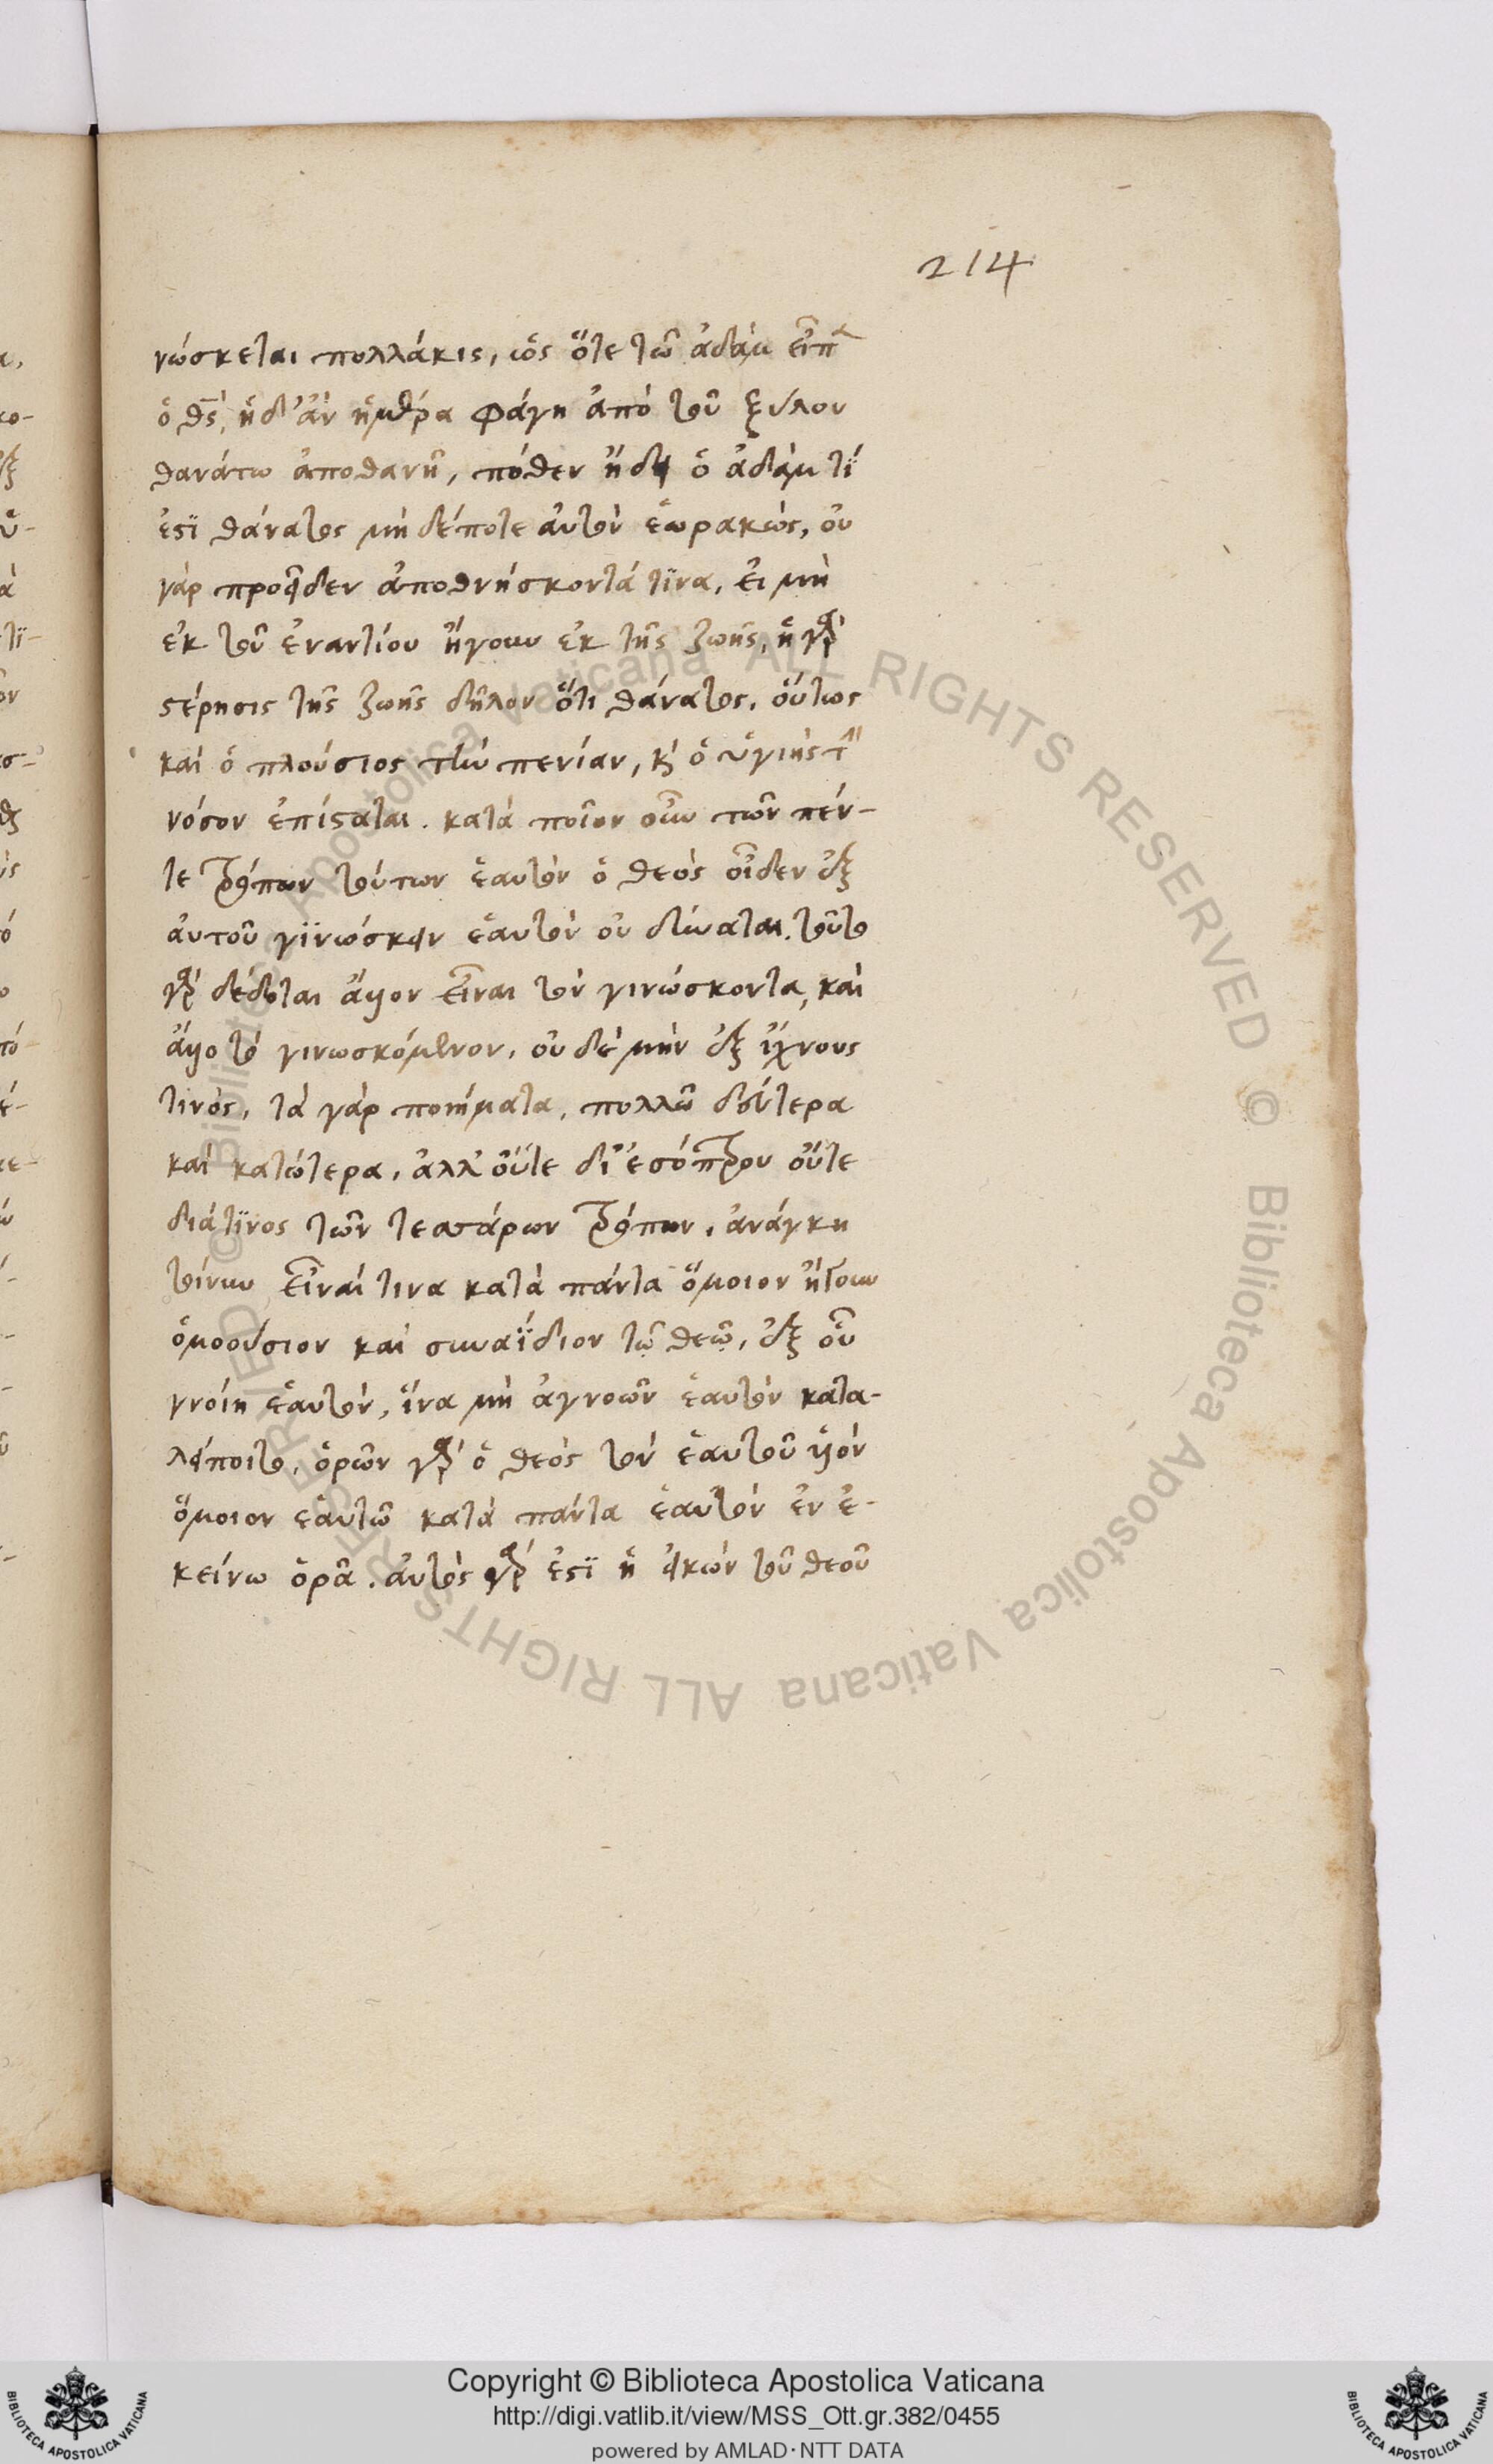 214
νώσκεται πολλάκις, ὡς ὅτε τῶ ἀδὰμ εἶπ
ὁ θς, ἧ δ' ἂν ἡμέρα φάγη ἀπὸ τοῦ ξύλου
θανάτω ἀποθανῆ, πόθεν ἤδει ὁ ἀδὰμ τί
ἐστὶ θάνατος μὴ δέποτε αὐτὸν ἑωρακὼς, οὐ
γὰρ προεῖδεν ἀποθνήσκοντά τϊνα, εἰ μὴ
ἐκ τοῦ ἐναντίου ἤγουν ἐκ τῆς ζωῆς, ἡ γὰρ
στέρησις τῆς ζωῆς δῆλον ὅτι θάνατος, οὕτως
καὶ ὁ πλούσιος τὴν πενίαν, κὶ ὁ ὑγιὴς τὴ
νόσον ἐπίσταται. κατὰ ποῖον οὖν τῶν πέν-
τε τρόπων τούτων ἑαυτὸν ὁ θεὸς οἶδεν ἐξ
αὐτοῦ γϊνώσκειν ἑαυτὸν οὐ δύναται. τοῦτο
γὰρ δέδοται ἄλλον εἶναι τὸν γινώσκοντα, καὶ
ἄλλο τὸ γινωσκόμενον, οὐ δὲ μὴν ἐξ ἴχνους
τινὸς, τὰ γὰρ ποιήματα, πολλῶ δεύτερα
καὶ κατώτερα, ἀλλ' οὔτε δι' ἐσόπτρου οὔτε
διά τϊνος τῶν τεσσάρων τρόπων, ἀνάγκη
τοίνυν εἶναί τινα κατὰ πάντα ὅμοιον ἤγουν
ὁμοούσιον καὶ συναΐδιον τῶ θεῶ, ἐξ οὗ
γνοίη ἑαυτὸν, ἵνα μὴ ἀγνοῶν ἑαυτὸν κατα-
λείποιτο, ὁρῶν γὰρ ὁ θεὸς τὸν ἑαυτοῦ υἱὸν
ὅμοιον ἑαυτῶ κατὰ πάντα ἑαυτὸν ἐν ἐ-
κείνω ὁρᾶ. αὐτὸς γὰρ ἐστὶ ἡ εἰκὼν τοῦ θεοῦ
© Biblioteca Apostolica Vaticana ALL RIGHTS RESERVED © Biblioteca Apostolica Vaticana ALL RIGHTS RESERVED
BIBLIOTECA APOSTOLICA VATICANA
Copyright © Biblioteca Apostolica Vaticana
http://digi.vatlib.it/view/MSS_Ott.gr.382/0455
powered by AMLAD·NTT DATA
BIBLIOTECA APOSTOLICA VATICANA